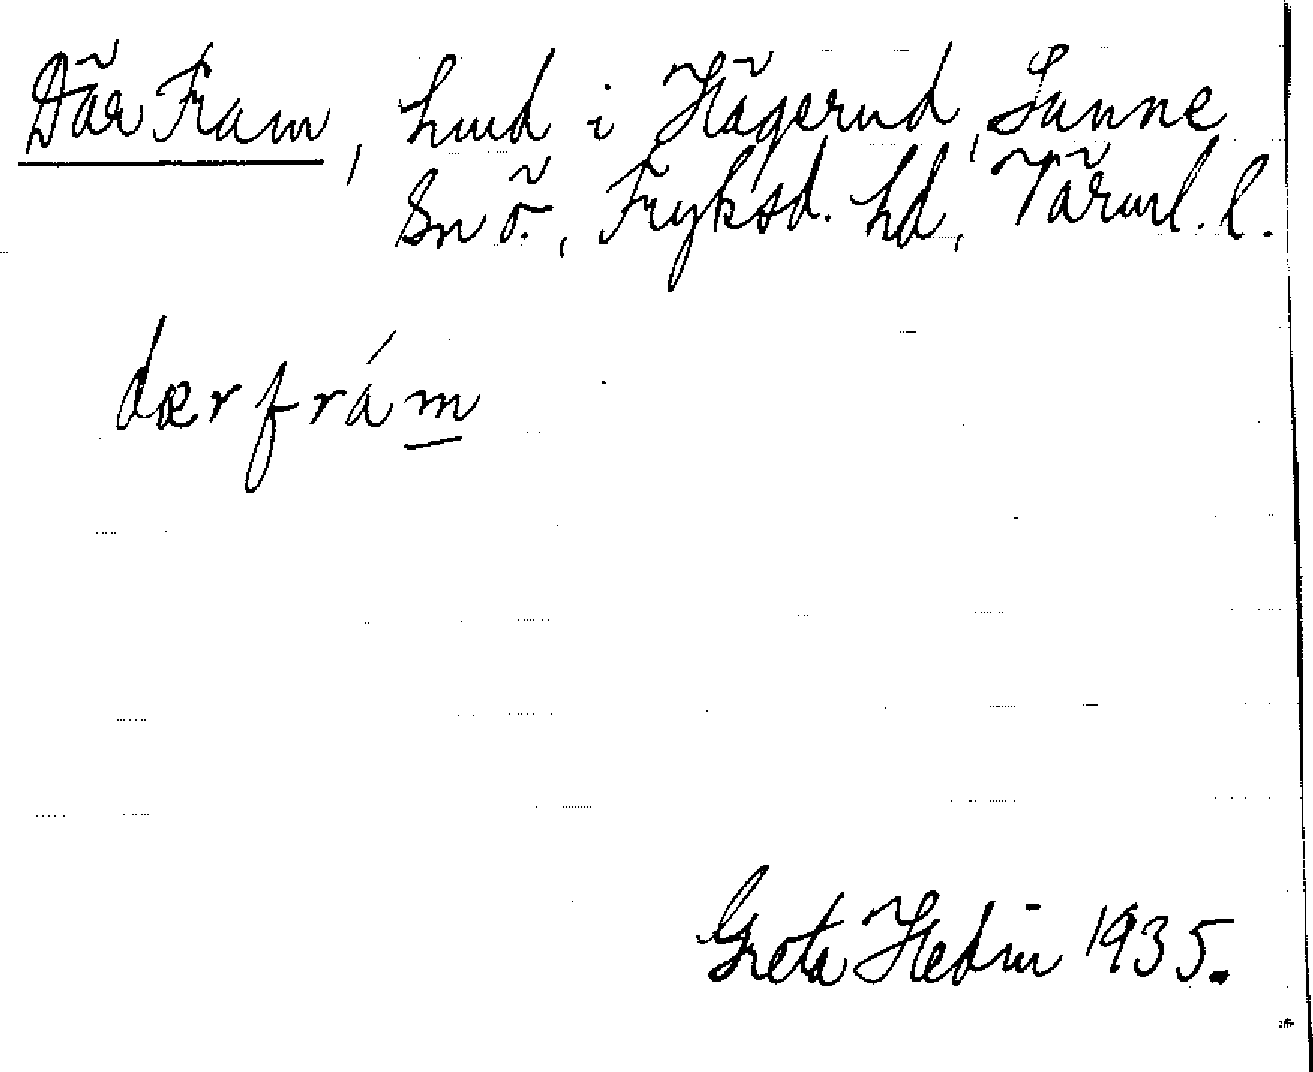 Där Fram, hmd i Hägerud, Sunne
Sn ö., Fryksd. hd, Värml. l.
dærfrám
Greta Hedin 1935.